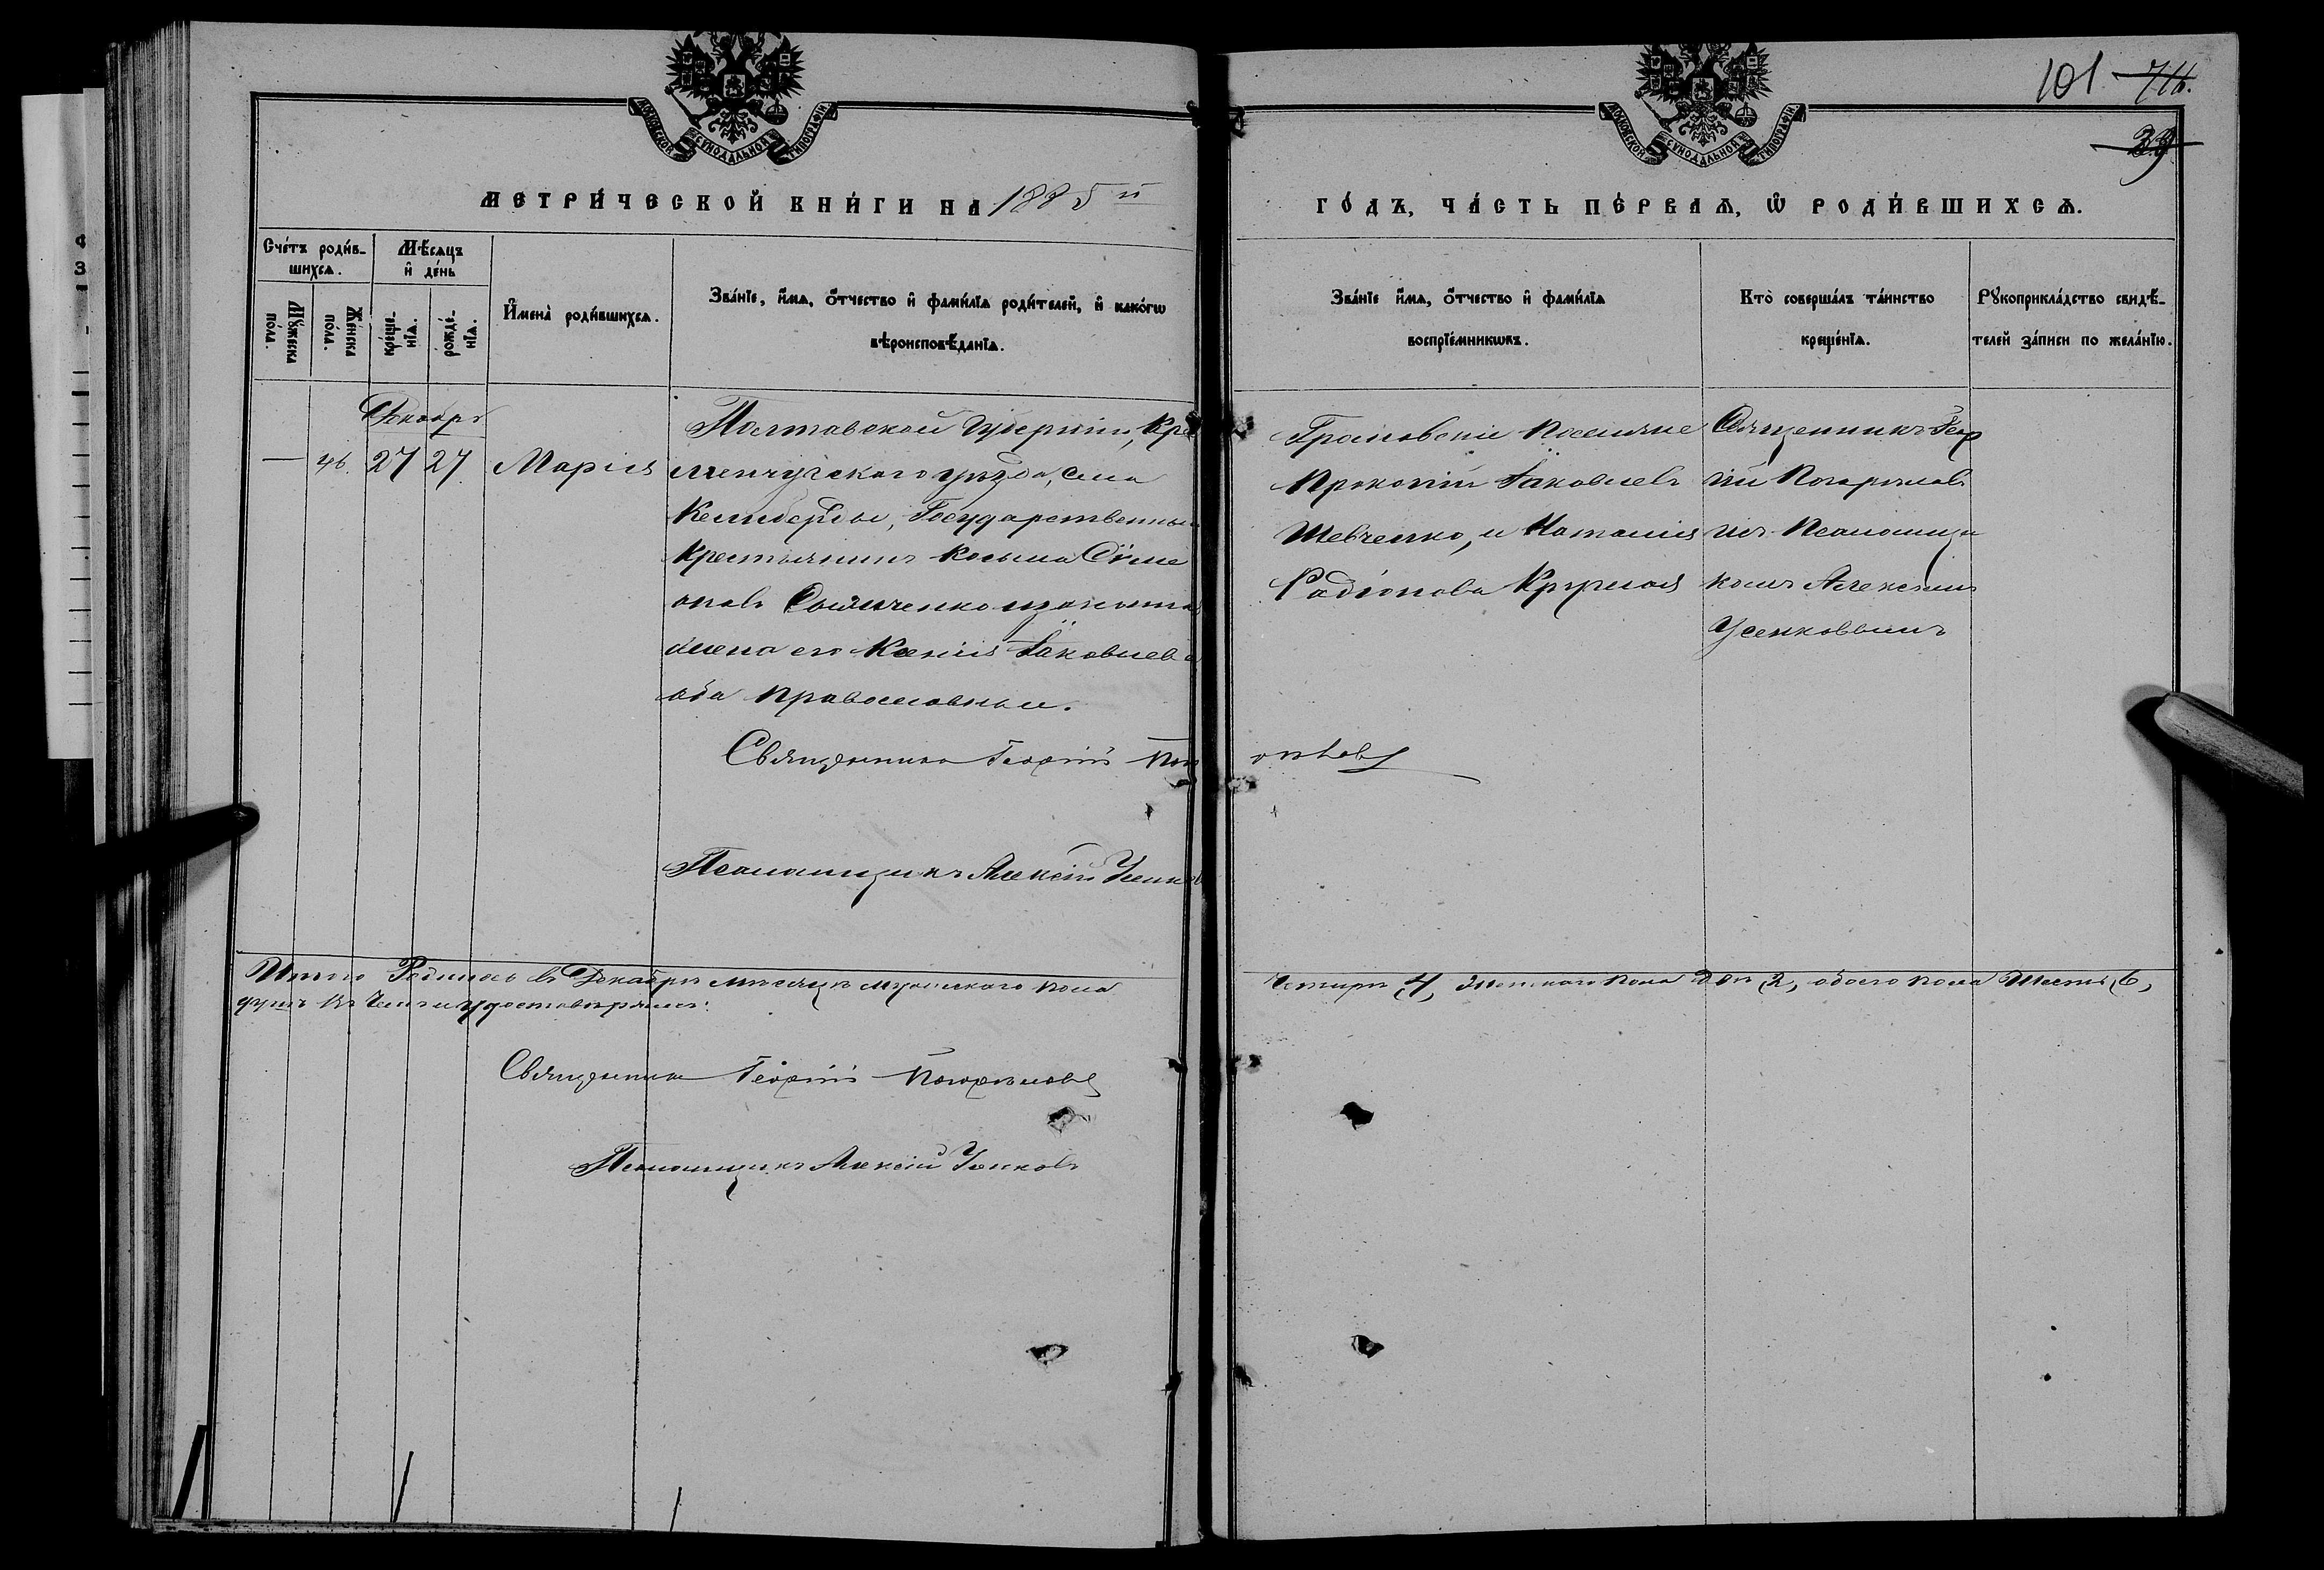 101. 711.
39
МОСКОВСКОЙ СУНОДАЛЬНОЙ ТИПОГРАФІИ
МОСКОВСКОЙ СУНОДАЛЬНОЙ ТИПОГРАФІИ
МЕТРИ́ЧЕСКОЙ КНИ́ГИ НА 1885 й
ГО́ДЪ, ЧА́СТЬ ПЕ́РВАЯ, Ѡ РОДИ́ВШИХСЯ.
Сче́тъ роди́в-
шихся.
Мѣ́сяцъ
и де́нь
Му́жеска
по́ла.
Же́нска
по́ла.
креще́-
нїа.
рожде́-
нїа.
Имена̀ роди́вшихся.
Зва́нїе, и́мя, о́тчество и фами́лїа роди́телей, и како́гѡ
вѣроисповѣ́данїа.
Зва́нїе и́мя, о́тчество и фами́лїа
воспрїе́мникѡвъ.
Кто̀ соверша́лъ та́инство
креще́нїа.
Рꙋкоприкла́дство свидѣ́-
телей за́писи по жела́нїю.
Декабрь
— 46. 27 27 Марія
Полтавской Губерніи, Кре
менчугскаго уѣзда, села
Келеберды, Государственный
Крестьянинъ Косьма Сѵме
оновъ законная
жена его Ксенія Іаковлева
оба православные.
Поселяне
Прокопій Іаковлевъ
Шевченко, и Наталія
Радіонова
Священникъ Геор
гій Погорѣловъ
съ Псаломщи
комъ Алексіемъ
Усенковымъ
Священникъ Георгій Погорѣловъ
Псаломщикъ Алексій Усенковъ
Итого Родилось въ Декабрѣ мѣсяцѣ мужескаго пола четыре, 4, женскаго пола двѣ, 2, обоего пола Шесть, 6,
душъ въ чемъ и удостовѣряемъ:
Священникъ Георгій Погорѣловъ
Псаломщикъ Алексій Усенковъ